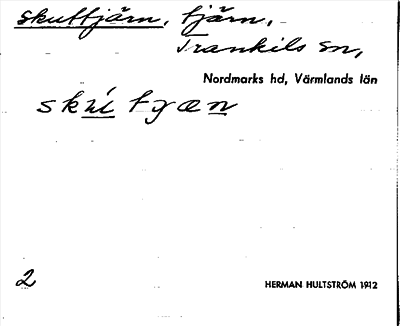 Skuttjärn, tjärn,
Trankils sn,
Nordmarks hd, Värmlands län
skút tjæn
2
HERMAN HULTSTRÖM 1912